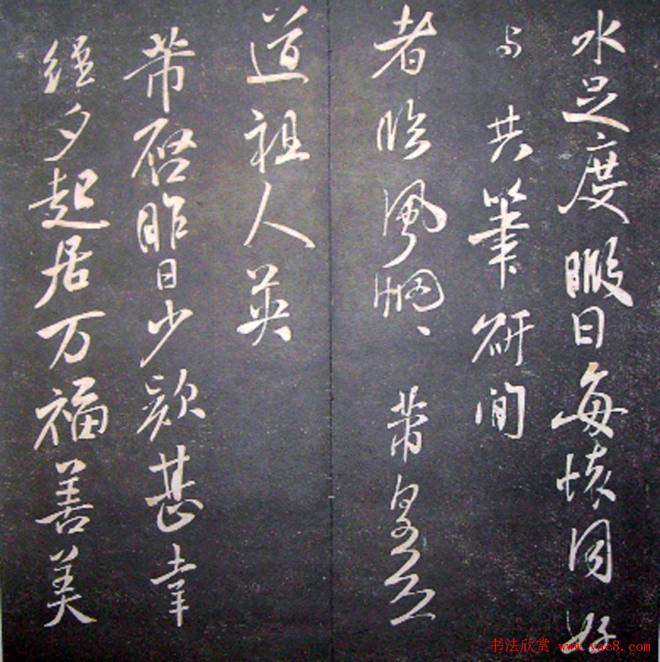 水足度暇日每懷同好
与共筆研間
者臨風惘〻芾皇恐
道祖人英
芾啓昨日少款甚幸
經夕起居万福善美
书法欣赏 www.yac8.com